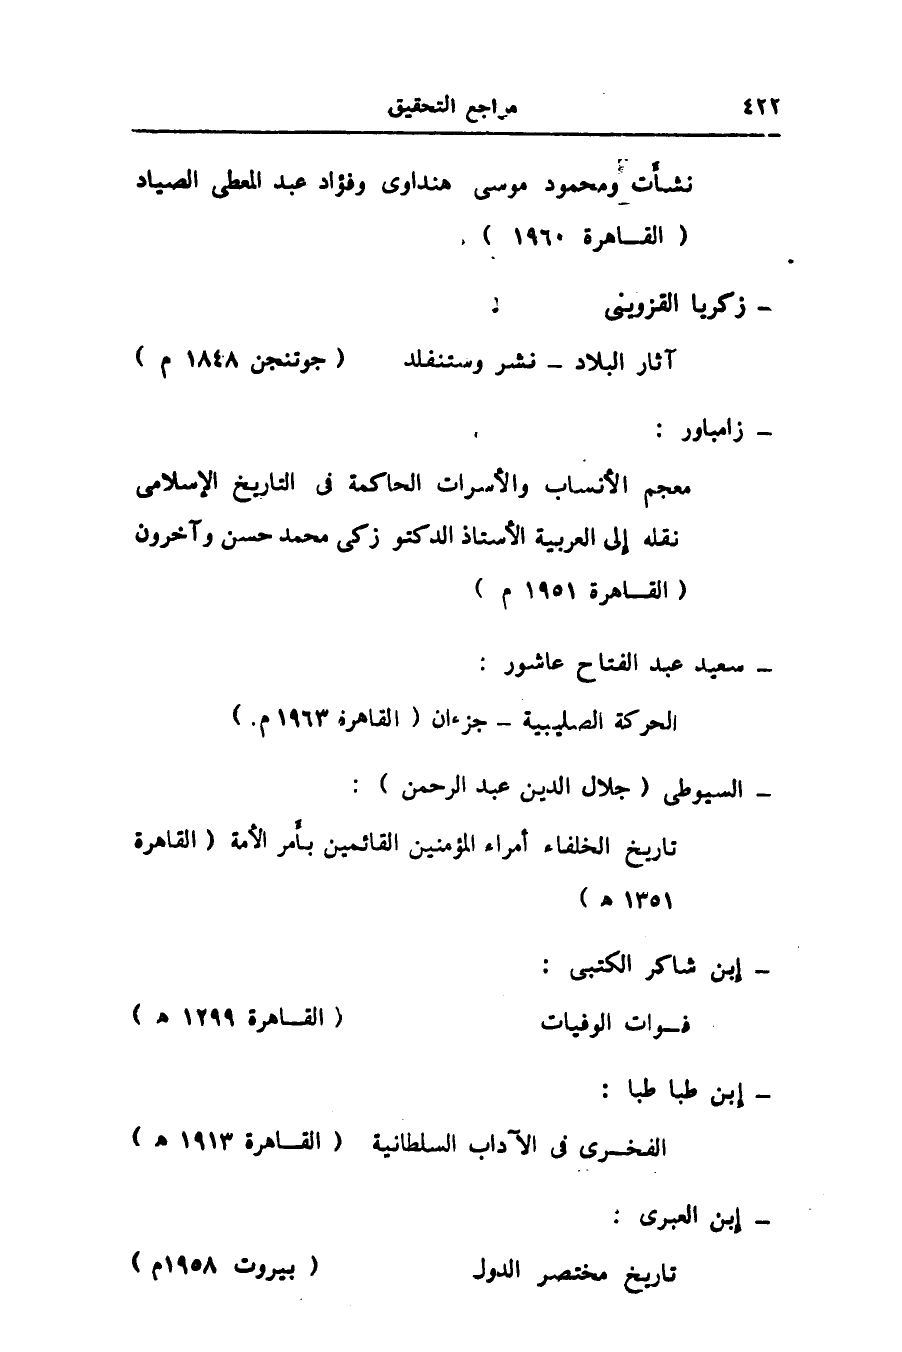 ٤٢٢ مراجع التحقيق
نشأت ومحمود موسى هنداوى وفؤاد عبد المعطى الصياد
( القاهرة ١٩٦٠ ) .
ـ زكريا القزوينى :
آثار البلاد ـ نشر وستنفلد ( جوتنجن ١٨٤٨ م )
ـ زامباور :
معجم الأنساب والأسرات الحاكمة فى التاريخ الإسلامى
نقله إلى العربية الأستاذ الدكتو زكى محمد حسن وآخرون
( القاهرة ١٩٥١ م )
ـ سعيد عبد الفتاح عاشور :
الحركة الصليبية ـ جزءان ( القاهرة ١٩٦٣ م. )
ـ السيوطى ( جلال الدين عبد الرحمن ) :
تاريخ الخلفاء أمراء المؤمنين القائمين بأمر الأمة ( القاهرة
١٣٥١ ه )
ـ إبن شاكر الكتبى :
فوات الوفيات ( القاهرة ١٢٩٩ ه )
ـ إبن طبا طبا :
الفخرى فى الآداب السلطانية ( القاهرة ١٩١٣ ه )
ـ إبن العبرى :
تاريخ مختصر الدول ( بيروت ١٩٥٨م )